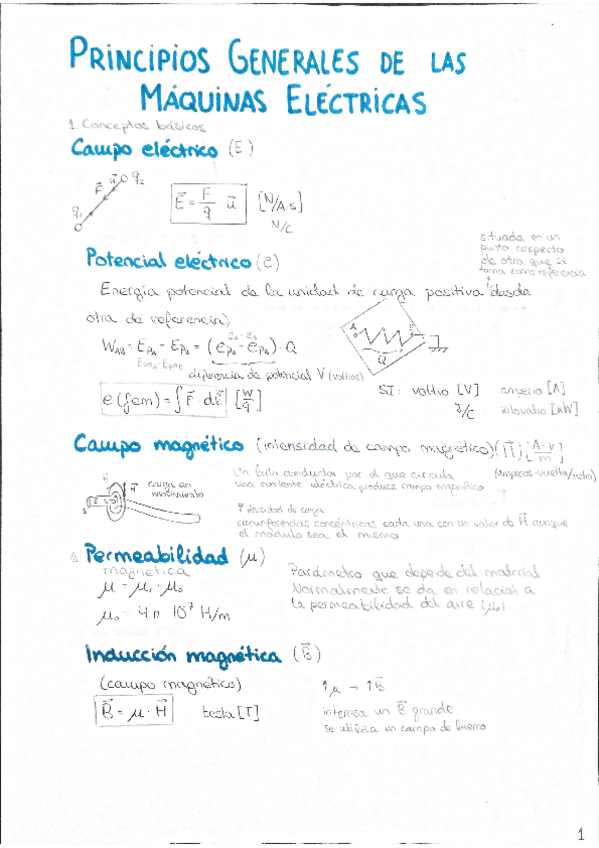 PRINCIPIOS GENERALES DE LAS
MÁQUINAS ELÉCTRICAS
1. Conceptos básicos
Campo eléctrico (E)
q₁ F⃗ u⃗ q₂
E⃗ = F/q u⃗ [N/A·s]
N/C
situada en un
punto respecto
de otra que se
toma como referencia
Potencial eléctrico (e)
Energía potencial de la unidad de carga positiva desde
otra de referencia,
W_AB = E_pA - E_pB = (e_pA - e_pB) · Q
diferencia de potencial V (voltios)
A B
Q
e (fem) = ∫ E⃗ · dl⃗ [W/q]
SI: voltio [V] amperio [A]
J/C kilovatio [kW]
Campo magnético (intensidad de campo magnético) (H⃗) [A·v/m]
(amperios-vuelta/metro)
Un hilo conductor por el que circula
una corriente eléctrica produce campo magnético
carga en
movimiento
densidad de carga
circunferencias concéntricas cada una con un valor de H⃗ aunque
el módulo sea el mismo
Permeabilidad (μ)
magnética
μ = μr · μ₀
μ₀ = 4π 10⁷ H/m
Parámetro que depende del material
Normalmente se da en relación a
la permeabilidad del aire (μ₀)
Inducción magnética (B⃗)
(campo magnético)
B⃗ = μ · H⃗ tesla [T]
↑μ → ↑B⃗
interesa un B⃗ grande
se utiliza un campo de hierro
1